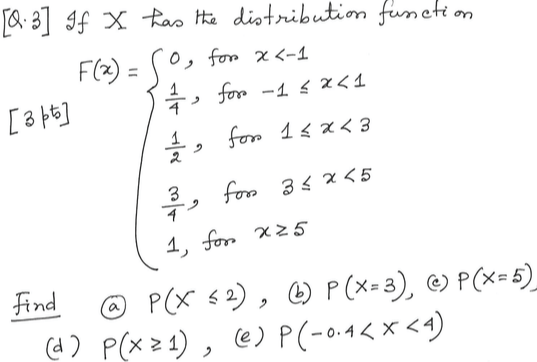 [Q.3] If X has the distribution function
F(x) = { 0, for x < -1
[3 pts] 1/4, for -1 ≤ x < 1
1/2, for 1 ≤ x < 3
3/4, for 3 ≤ x < 5
1, for x ≥ 5
find ⓐ P(X ≤ 2), (b) P(X=3), ⓒ P(X=5),
(d) P(X ≥ 1), (e) P(-0.4 < X < 4)